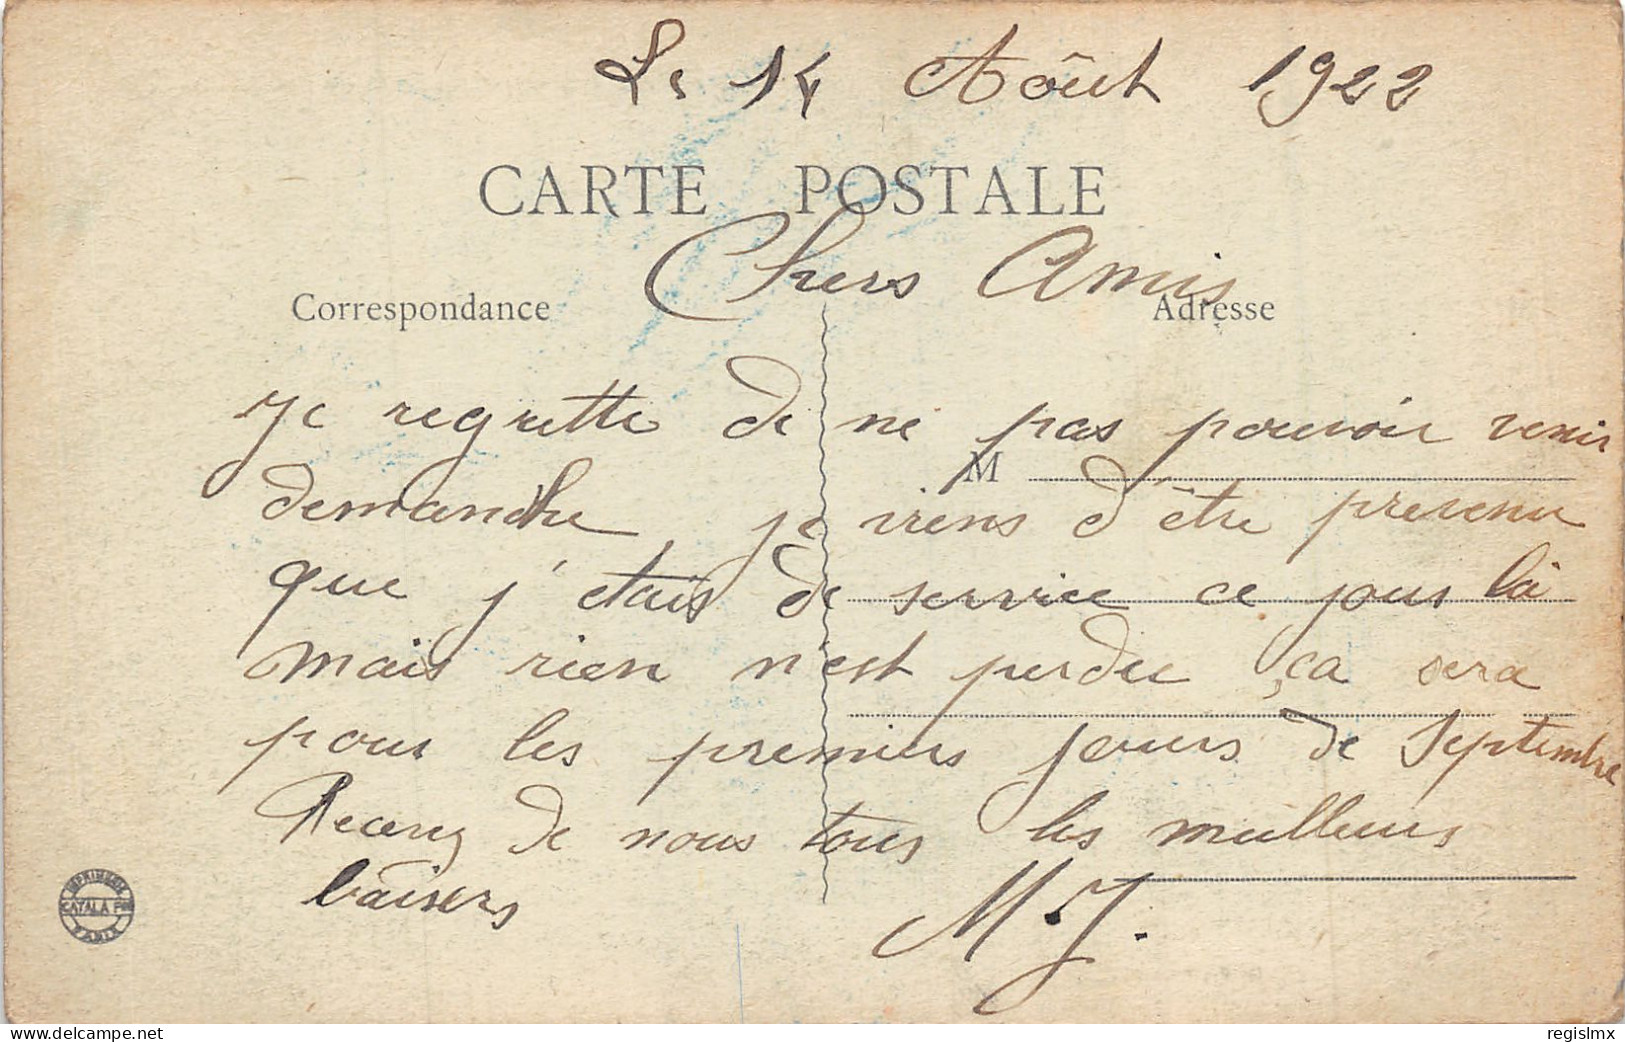 Le 14 Août 1922
CARTE POSTALE
Chers Amis
Correspondance
Adresse
Je regrette de ne pas pouvoir venir
M
demanche je viens d'être prevenu
que j'etais de service ce jour là
mais rien n'est perdu ça sera
pour les premiers jours de Septembre
Recevez de nous tous les meilleurs
baisers
M. J.
IMPRIMERIE
CATALA Frs
PARIS
regislmx